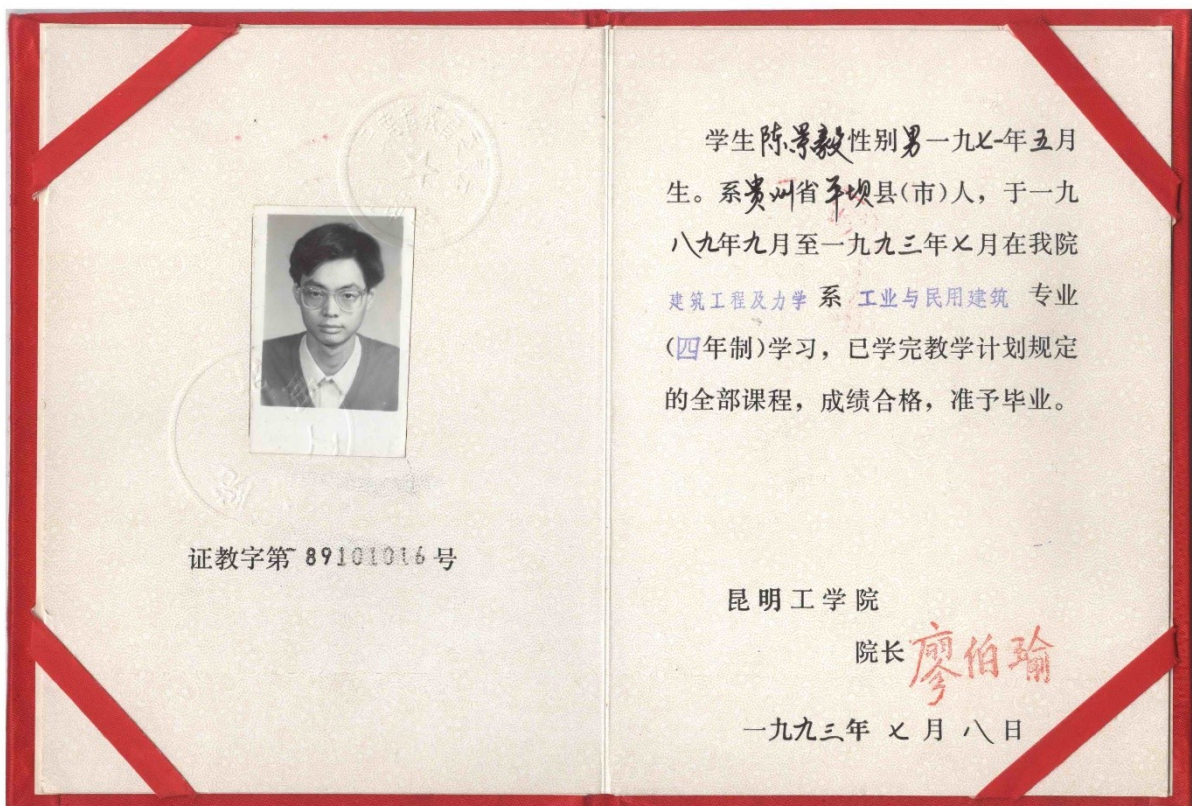 证教字第 89101016 号
学生陈景毅性别男一九七一年五月
生。系贵州省平坝县(市)人，于一九
八九年九月至一九九三年七月在我院
建筑工程及力学 系 工业与民用建筑 专业
(四年制)学习，已学完教学计划规定
的全部课程，成绩合格，准予毕业。
昆明工学院
院长 廖伯瑜
一九九三年七月八日